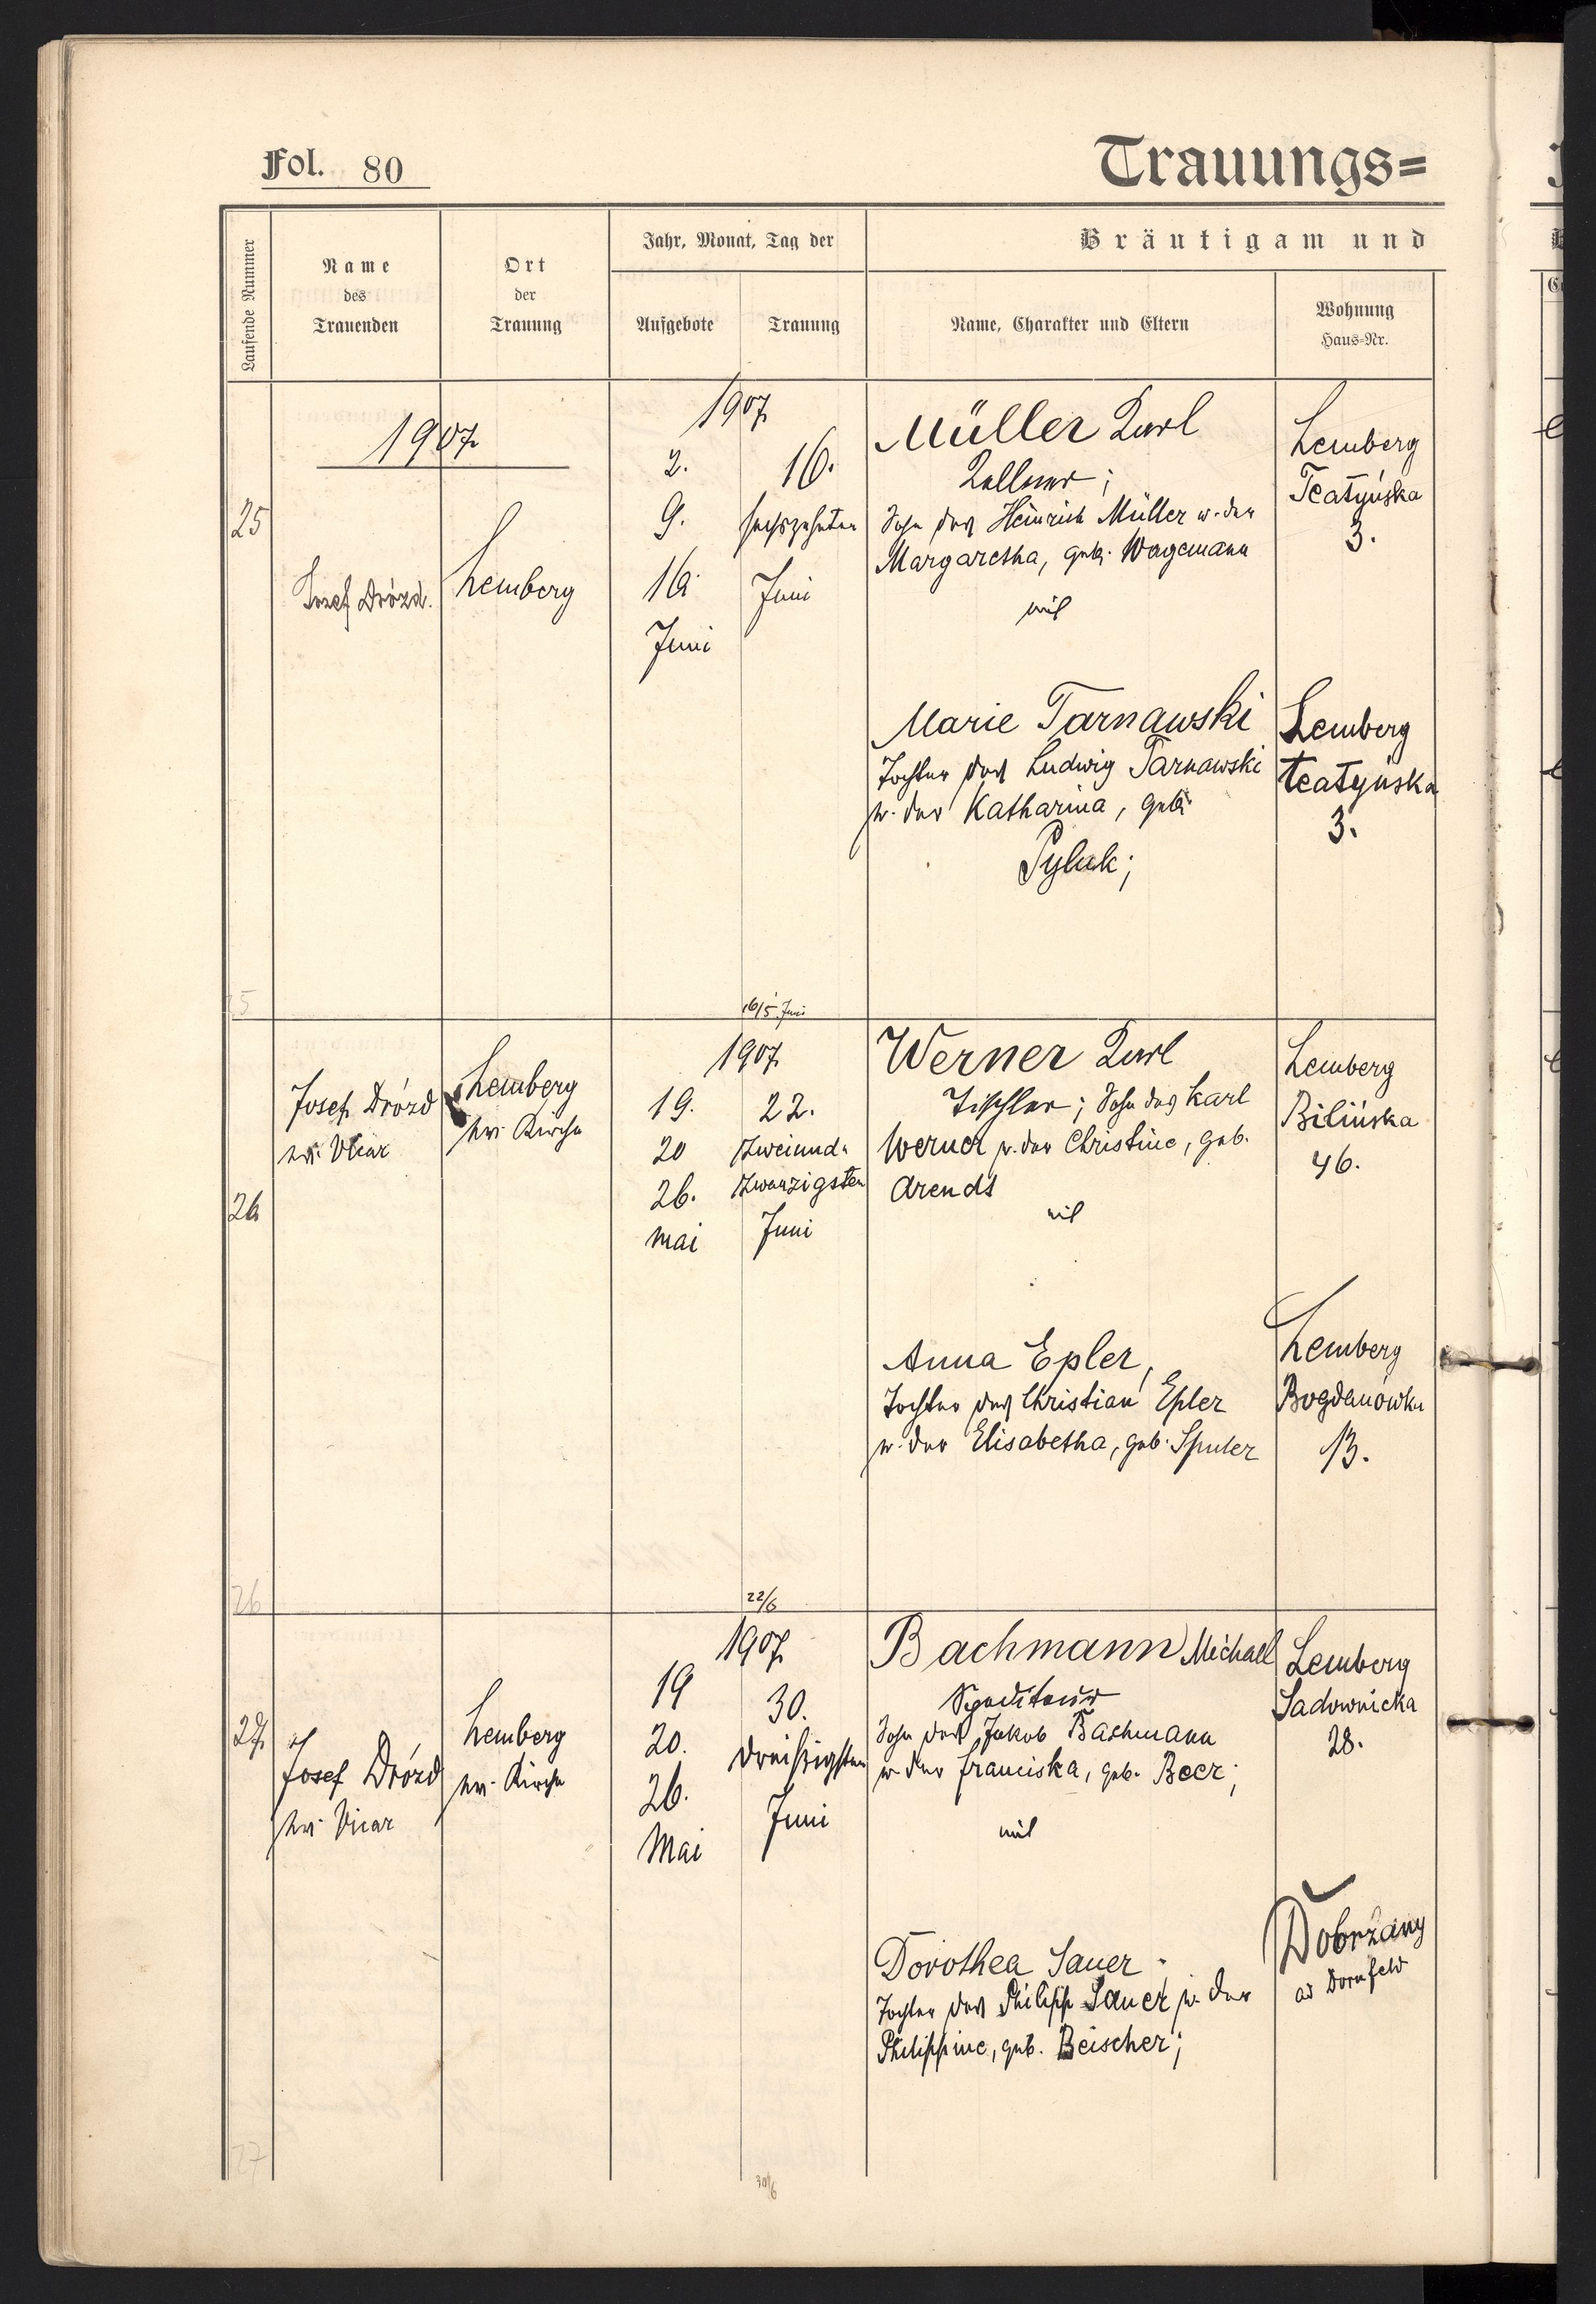 Fol. 80
Trauungs=
Laufende Nummer
Name
des
Trauenden
Ort
der
Trauung
Jahr, Monat, Tag der
Aufgebote
Trauung
Bräutigam und
Name, Charakter und Eltern
Wohnung
Haus=Nr.
1907
25
Josef Drózd.
Lemberg
1907
2.
9.
16.
Juni
16.
sechszehnten
Juni
Müller Karl
Kellner;
Sohn des Heinrich Müller u. der
Margaretha, geb. Wagemann
mit
Lemberg
Teatyńska
3.
Marie Tarnawski
Tochter des Ludwig Tarnawski
u. der Katharina, geb.
Pylak;
Lemberg
teatyńska
3.
25
16/5 Juni
26
Josef Drózd
ev. Vicar
Lemberg
ev. Kirche
1907
19.
20
26.
Mai
22.
Zweiund-
zwanzigsten
Juni
Werner Karl
Tischler; Sohn des Karl
Werner u. der Christine, geb.
Arends
mit
Lemberg
Bilińska
46.
Anna Epler,
Tochter des Christian Epler
u. der Elisabetha, geb. Spuler
Lemberg
Bogdanówka
13.
26
22/6
27
Josef Drózd
ev. Vicar
Lemberg
ev. Kirche
1907
19
20.
26.
Mai
30.
dreißigsten
Juni
Bachmann Michael
Spediteur
Sohn des Jakob Bachmann
u. der Franciska, geb. Beer;
mit
Lemberg
Sadownicka
28.
Dorothea Sauer
Tochter des Philipp Sauer u. der
Philippine, geb. Beischer;
Dobrzany
ad Dornfeld
27
30/6